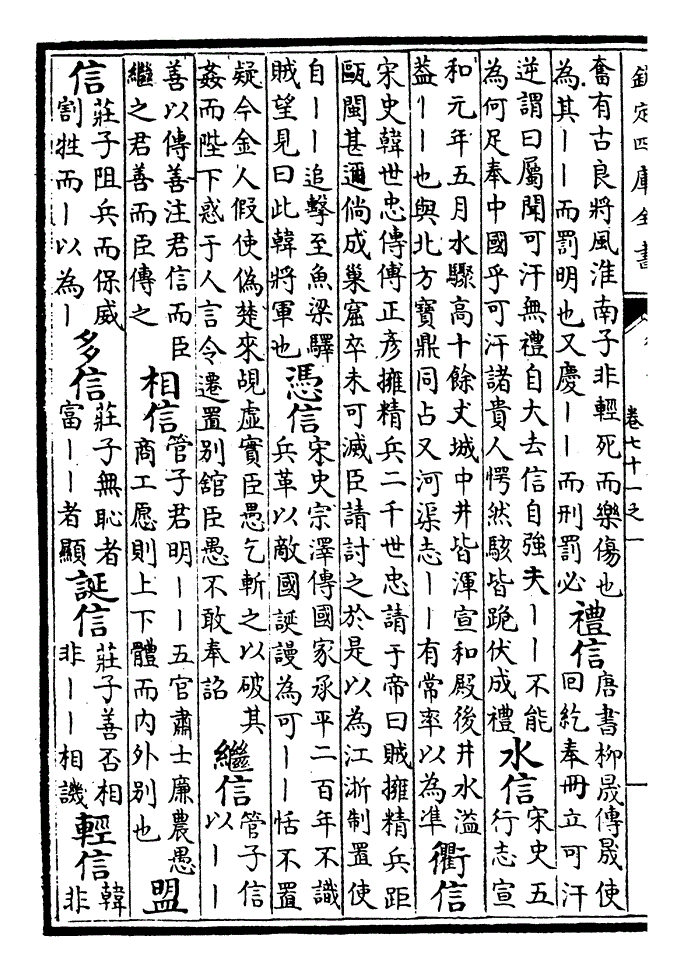 欽定四庫全書
卷七十一之一
奮有古良將風淮南子非輕死而樂傷也
為其丨丨而罰明也又慶丨丨而刑罰必
禮信
唐書柳晟傳晟使
回紇奉冊立可汗
逆謂曰屬聞可汗無禮自大去信自強夫丨丨不能
為何足奉中國乎可汗諸貴人愕然駭皆跪伏成禮
水信
宋史五
行志宣
和元年五月水驟高十餘丈城中井皆渾宣和殿後井水溢
葢丨丨也與北方寶鼎同占又河渠志丨丨有常率以為準
衢信
宋史韓世忠傳傅正彥擁精兵二千世忠請于帝曰賊擁精兵距
甌閩甚邇倘成巢窟卒未可滅臣請討之於是以為江浙制置使
自丨丨追擊至魚梁驛
賊望見曰此韓將軍也
憑信
宋史宗澤傳國家承平二百年不識
兵革以敵國誕謾為可丨丨恬不置
疑今金人假使偽楚來覘虛實臣愚乞斬之以破其
姦而陛下惑于人言令遷置別舘臣愚不敢奉詔
繼信
管子信
以丨丨
善以傳善注君信而臣
繼之君善而臣傳之
相信
管子君明丨丨五官肅士廉農愚
商工愿則上下體而內外別也
盟
信
莊子阻兵而保威
割牲而丨以為丨
多信
莊子無恥者
富丨丨者顯
誕信
莊子善否相
非丨丨相譏
輕信
韓
非